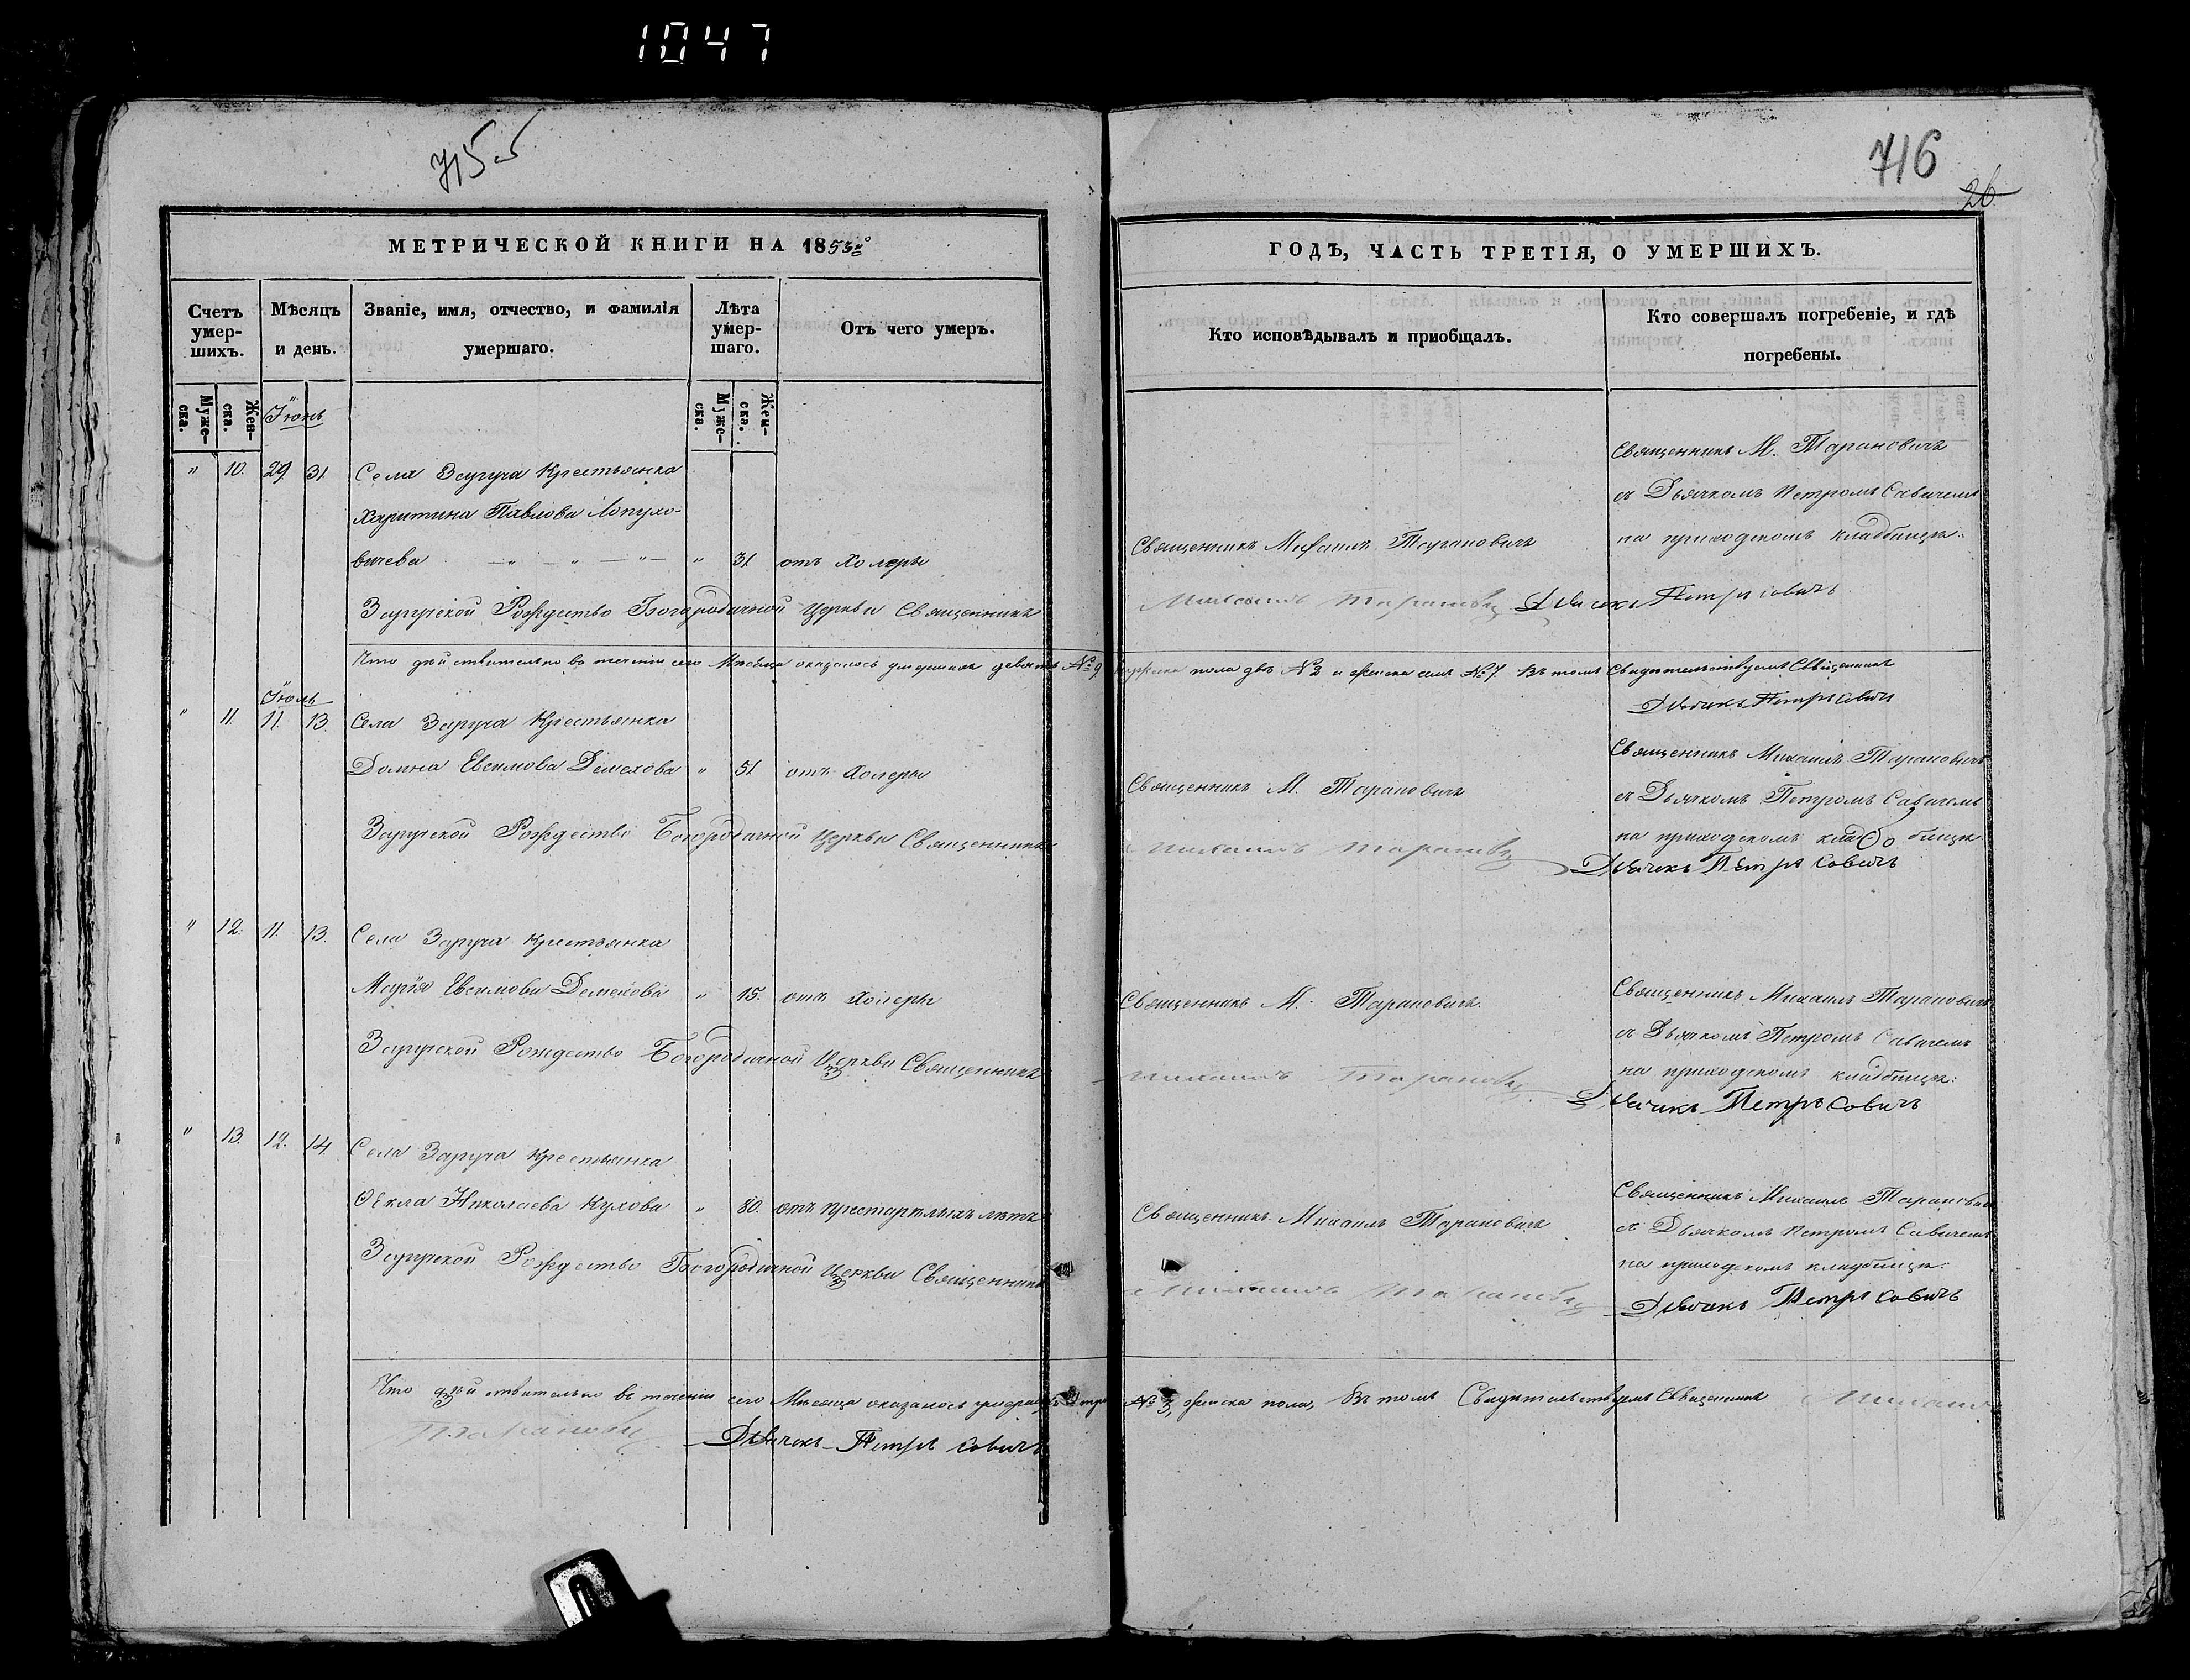 1047
715об
716
26
МЕТРИЧЕСКОЙ КНИГИ НА 1853й
ГОДЪ, ЧАСТЬ ТРЕТІЯ, О УМЕРШИХЪ.
Счетъ умер-шихъ.
Муже-ска.
Жен-ска.
Мѣсяцъ и день.
Званіе, имя, отчество, и фамилія умершаго.
Лѣта умер-шаго.
Муже-ска.
Жен-ска.
Отъ чего умеръ.
Кто исповѣдывалъ и приобщалъ.
Кто совершалъ погребеніе, и гдѣ погребены.
Іюнь
" 10. 29. 31. Села Заруча Крестьянка
Харитина Павлова Лопухо-
вичева " 31 отъ Холеры
Священникъ Михаилъ Тарановичъ
Священникъ М. Тарановичъ
съ Дьячкомъ Петромъ Савичемъ
на приходскомъ кладбищѣ:
Заручской Рождество Богородичной Церкви Священникъ Михаилъ Тарановичъ Дьячекъ Петръ Савичъ
Что дѣйствительно въ теченіи сего Мѣсяца оказалось умершихъ девять № 9 мужска пола два № 2 и женска семь № 7. Въ томъ Свидѣтельствуемъ Священникъ
Дьячекъ Петръ Савичъ
Іюль
" 11. 11. 13. Села Заруча Крестьянка
Домна Евсимова Демехова " 51 отъ Холеры
Священникъ М. Тарановичъ
Священникъ Михаилъ Тарановичъ
съ Дьячкомъ Петромъ Савичемъ
на приходскомъ кладбищѣ
Заручской Рождество Богородичной Церкви Священникъ Михаилъ Тарановичъ
Дьячекъ Петръ Савичъ
" 12. 11. 13. Села Заруча Крестьянка
Марія Евсимова Демехова " 15. отъ Холеры
Священникъ М. Тарановичъ.
Священникъ Михаилъ Тарановичъ
съ Дьячкомъ Петромъ Савичемъ
на приходскомъ кладбищѣ:
Заручской Рождество Богородичной Церкви Священникъ Михаилъ Тарановичъ
Дьячекъ Петръ Савичъ
" 13. 12. 14 Села Заруча Крестьянка
Ѳекла Николаева Кухова " 80. отъ престарѣлыхъ лѣтъ
Священникъ Михаилъ Тарановичъ
Священникъ Михаилъ Тарановичъ
съ Дьячкомъ Петромъ Савичемъ
на приходскомъ кладбищѣ:
Заручской Рождество Богородичной Церкви Священникъ Михаилъ Тарановичъ
Дьячекъ Петръ Савичъ
Что дѣйствительно въ теченіи сего Мѣсяца оказалось умершихъ три № 3, женска пола, Въ томъ Свидѣтельствуемъ Священникъ Михаилъ
Тарановичъ Дьячекъ Петръ Савичъ